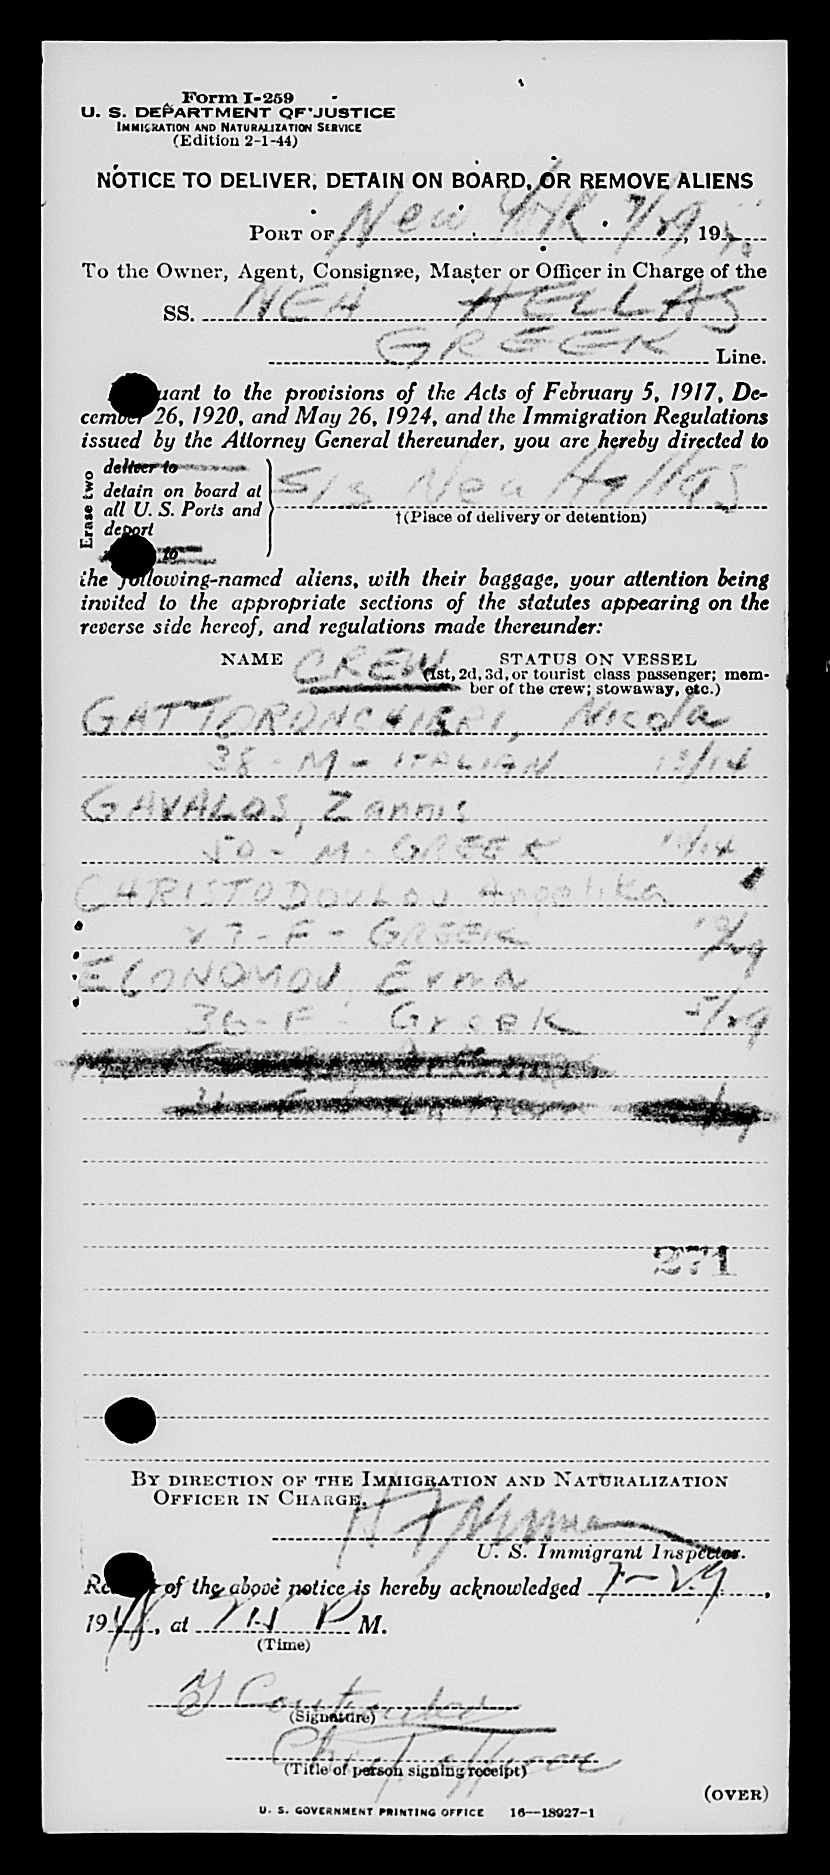 Form I-259
U. S. DEPARTMENT OF JUSTICE
IMMIGRATION AND NATURALIZATION SERVICE
(Edition 2-1-44)
NOTICE TO DELIVER, DETAIN ON BOARD, OR REMOVE ALIENS
PORT OF New York 7/29, 19
To the Owner, Agent, Consignee, Master or Officer in Charge of the
SS. NEA HELLAS
GREEK Line.
uant to the provisions of the Acts of February 5, 1917, De-
cember 26, 1920, and May 26, 1924, and the Immigration Regulations
issued by the Attorney General thereunder, you are hereby directed to
Erase two
deliver to
detain on board at
all U. S. Ports and
deport
to
S/S Nea Hellas
†(Place of delivery or detention)
the following-named aliens, with their baggage, your attention being
invited to the appropriate sections of the statutes appearing on the
reverse side hereof, and regulations made thereunder:
NAME CREW STATUS ON VESSEL
(1st, 2d, 3d, or tourist class passenger; mem-
ber of the crew; stowaway, etc.)
GATTORONCHIERI, Nicola
38 - M - ITALIAN 13/14
GAVALAS, Zannis
50 - M - GREEK 13/14
CHRISTODOULOU Angelika
27 - F - GREEK 10/29
ECONOMOU Erna
36 - F - Greek 5/29
271
BY DIRECTION OF THE IMMIGRATION AND NATURALIZATION
OFFICER IN CHARGE.
U. S. Immigrant Inspector.
of the above notice is hereby acknowledged 7-29,
1948, at PM.
(Time)
(Signature)
Chief officer
(Title of person signing receipt)
(OVER)
U. S. GOVERNMENT PRINTING OFFICE 16—18927-1